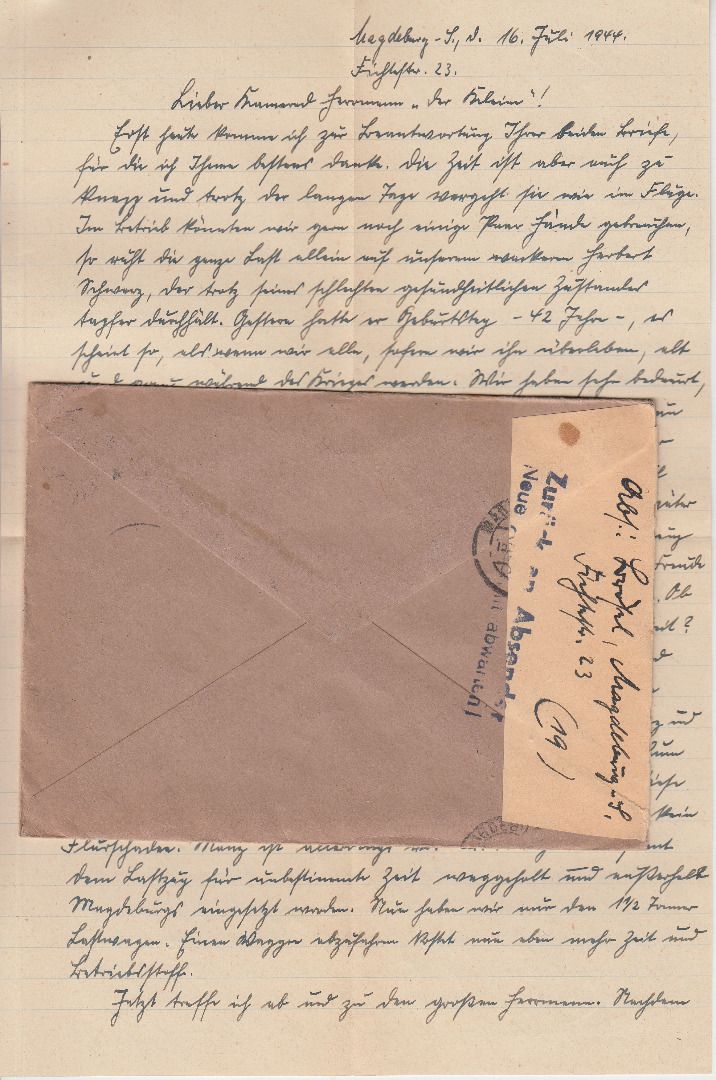 Magdeburg-S., d. 16. Juli 1944.
Fichtestr. 23.
Lieber Kamerad Herrmann „der Kleine"!
Erst heute komme ich zur Beantwortung Ihrer beiden Briefe,
für die ich Ihnen bestens danke. Die Zeit ist aber auch zu
knapp und trotz der langen Tage vergeht sie wie im Fluge.
Im Betrieb könnten wir gern noch einige Paar Hände gebrauchen,
so ruht die ganze Last allein auf unserem wackeren Herbert
Schwarz, der trotz seines schlechten gesundheitlichen Zustandes
tapfer durchhält. Gestern hatte er Geburtstag - 42 Jahre -, es
scheint so, als wenn wir alle, sofern wir ihn überleben, alt
und grau während des Krieges werden. Wir haben sehr bedauert,
Freude
Ob
und
kein
Flurschaden. Manz ist allerdings
dem Lastzug für unbestimmte Zeit weggeholt und außerhalb
Magdeburgs eingesetzt worden. Nun haben wir nur den 1½ Tonner
Lastwagen. Einen Waggon abzufahren kostet nun eben mehr Zeit und
Betriebsstoff.
Jetzt treffe ich ab und zu den großen Herrmann. Nachdem
Zurück an Absender
Neue
abwarten!
Abs.:
Magdeburg-S.
Fichtestr. 23
(19)